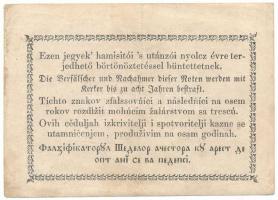 Ezen jegyek' hamisítói 's utánzói nyolcz évre ter-
jedhető börtönöztetéssel büntettetnek.
Die Verfälscher und Nachahmer dieser Noten werden mit
Kerker bis zu acht Jahren bestraft.
Tíchto znakov zfalssovníci a následníci na osem
rokov rozdlžit mohúcim žalárstvom sa trescú.
Ovih cèduljah izkrivitelji i spotvoritelji kazne se
utamničenjem, produživim na osam godinah.
ФалсіфікаторȢл Шеделор ачестора кȢ арест де
опт анї се ва педепсі.